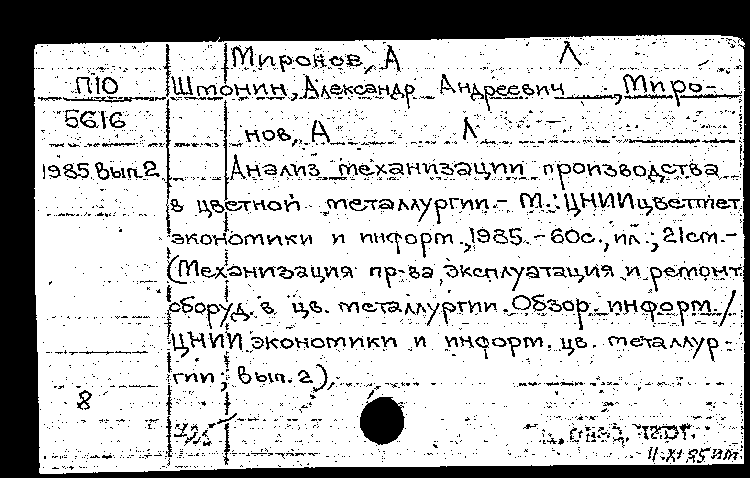 Миронов, А Л
П10 Штонин, Александр Андреевич, Миро-
5616 нов, А Л
1985 вып.2 Анализ механизации производства
в цветной металлургии.- М.: ЦНИИцветмет
экономики и информ., 1985.-60с., ил.; 21см.-
(Механизация пр-ва, эксплуатация и ремонт
оборуд. в цв. металлургии. Обзор. информ. /
ЦНИИ экономики и информ. цв. металлур-
гии; вып.2).
8